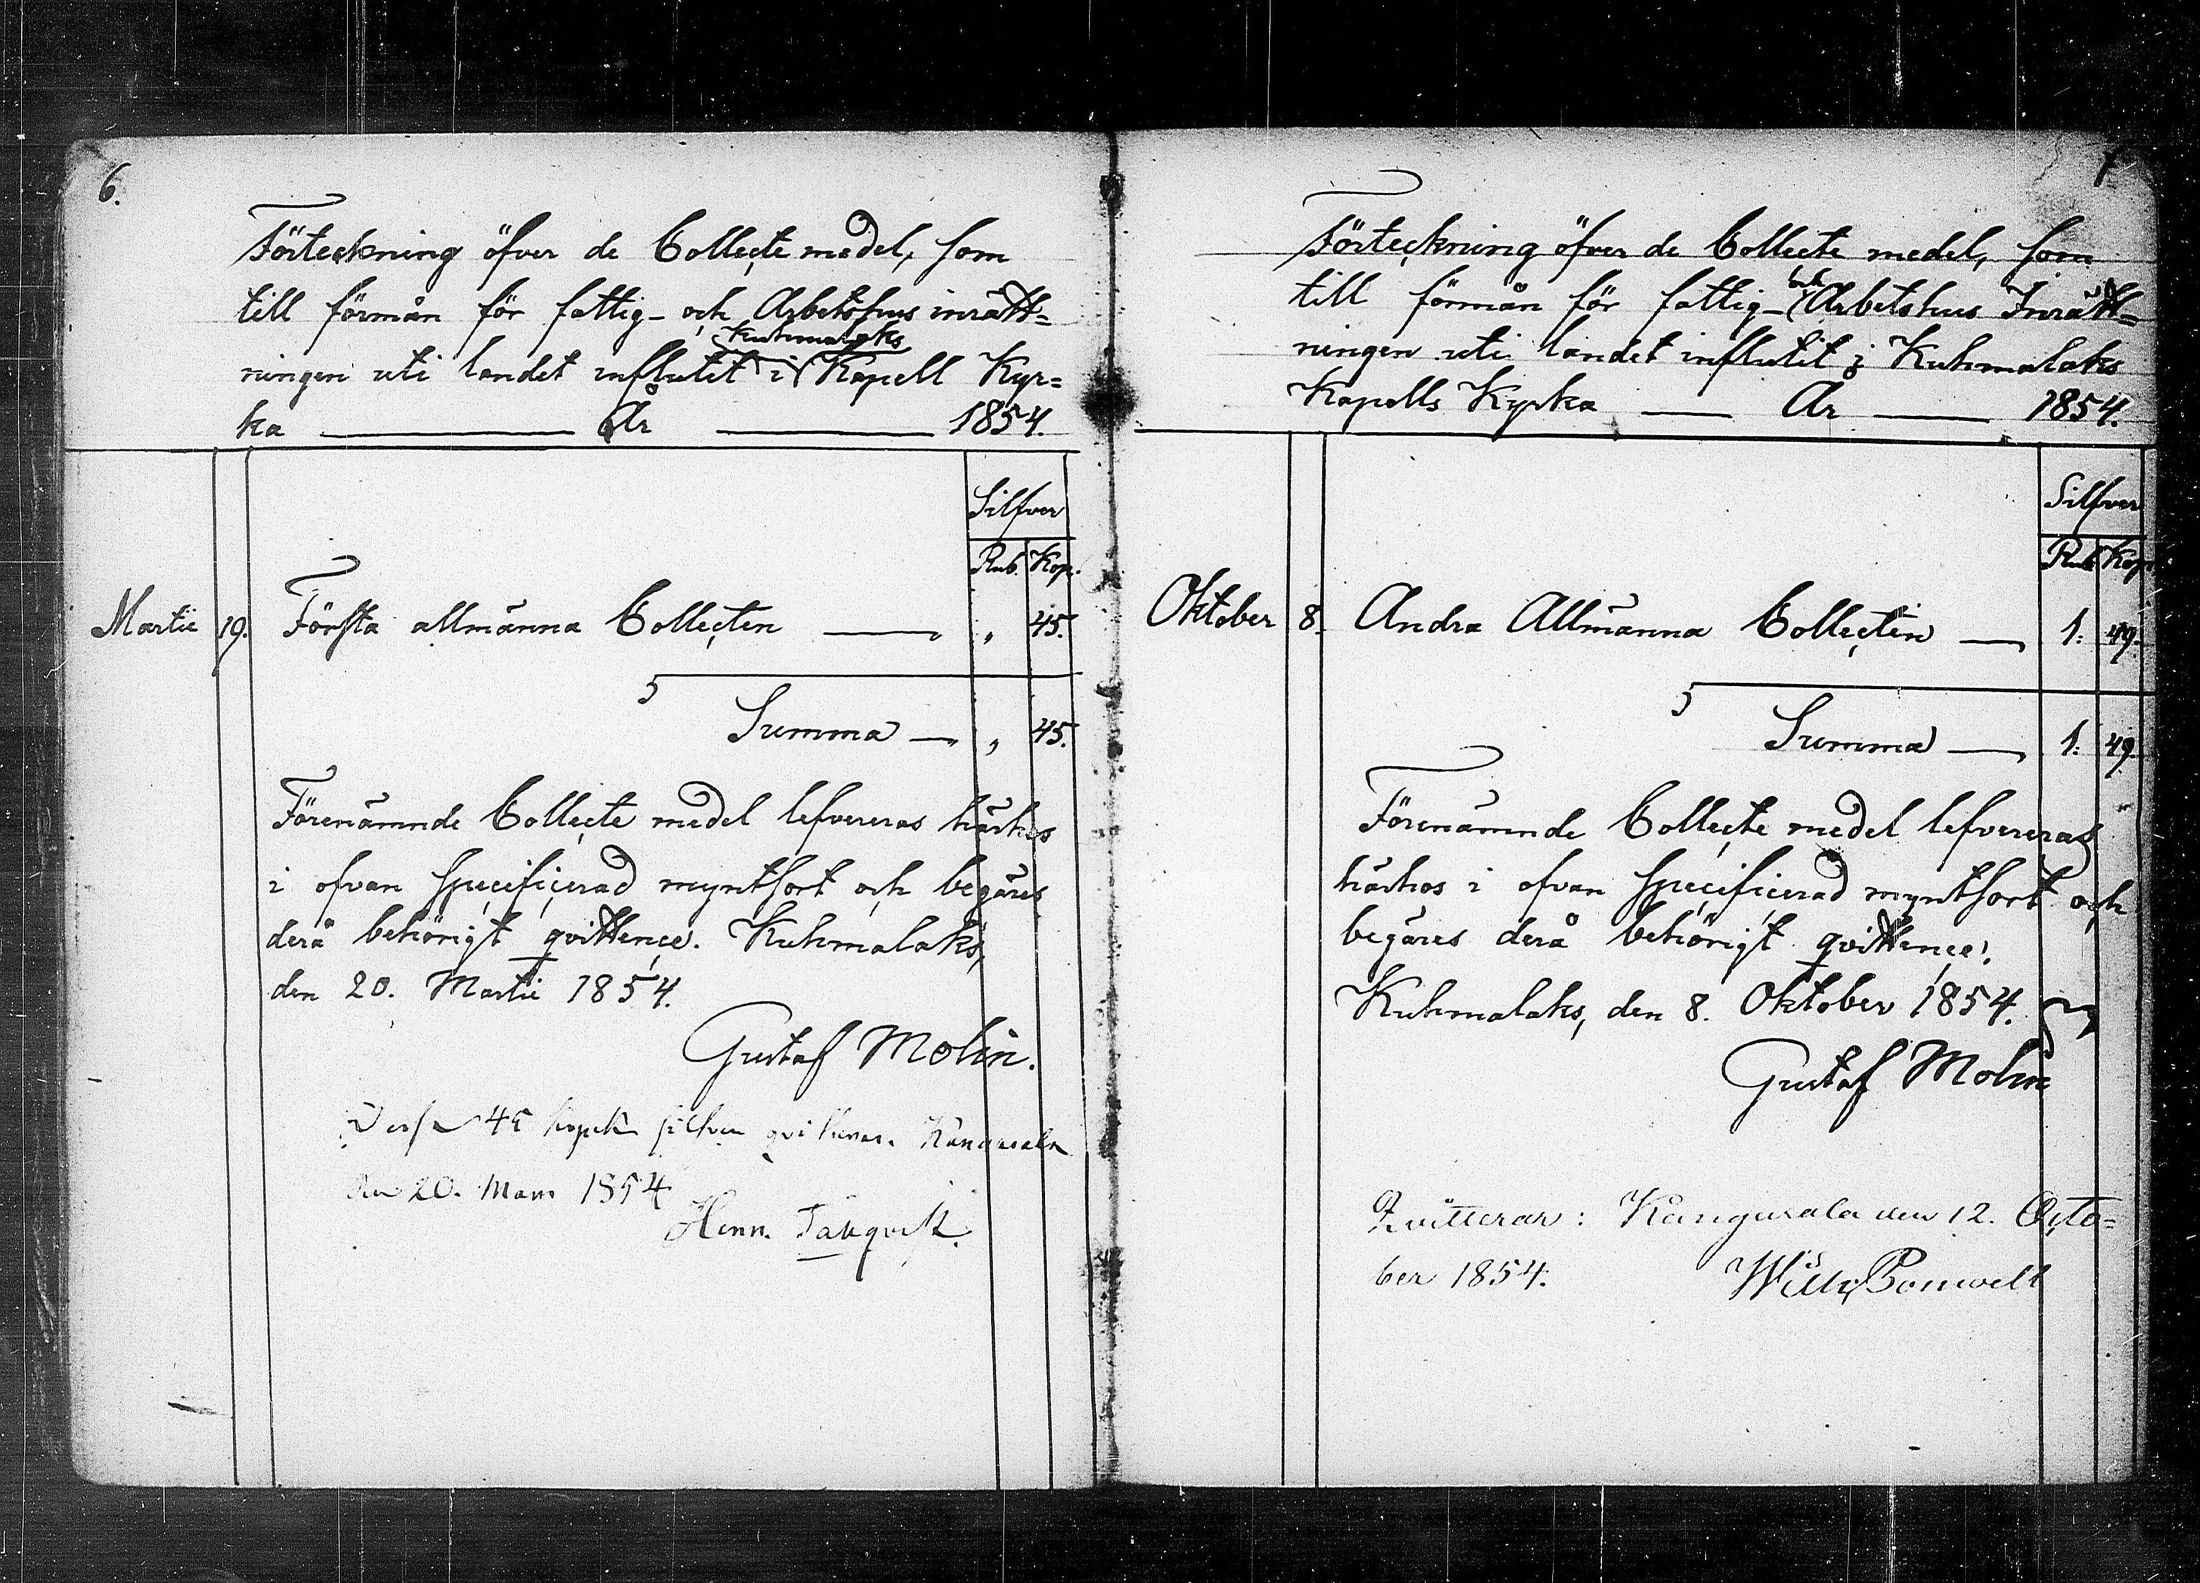 6.
Förteckning öfver de Collecte medel, som
till förmån för fattig- och Arbetshus inrätt=
Kuhmalaks
ningen uti landet influtit i Kapell Kyr=
ka År 1854.
Silfver
Rub. Kop.
Martii 19. Första allmänna Collecten — " 45.
Summa — " 45.
Förenämnde Collecte medel lefvereras härhos
i ofvan specificerad myntsort och begäres
derå behörigt qvittence. Kuhmalaks,
den 20. Martii 1854.
Gustaf Molin.
45 kopek silfver qvitteras. Kangasala
den 20. Mars 1854
Henr.
7
Förteckning öfver de Collecte medel, som
till förmån för fattig- och Arbetshus Inrätt=
ningen uti landet influtit i Kuhmalaks
Kapells Kyrka — År — 1854.
Silfver
Rub Kop
Oktober 8. Andra Allmänna Collecten — 1. 49.
Summa — 1. 49.
Förenämnde Collecte medel lefvereras
härhos i ofvan specificerad myntsort och
begäres derå behörigt qvittence.
Kuhmalaks, den 8. Oktober 1854.
Gustaf Molin
Qvitterar: Kangasala den 12. Octo=
ber 1854.